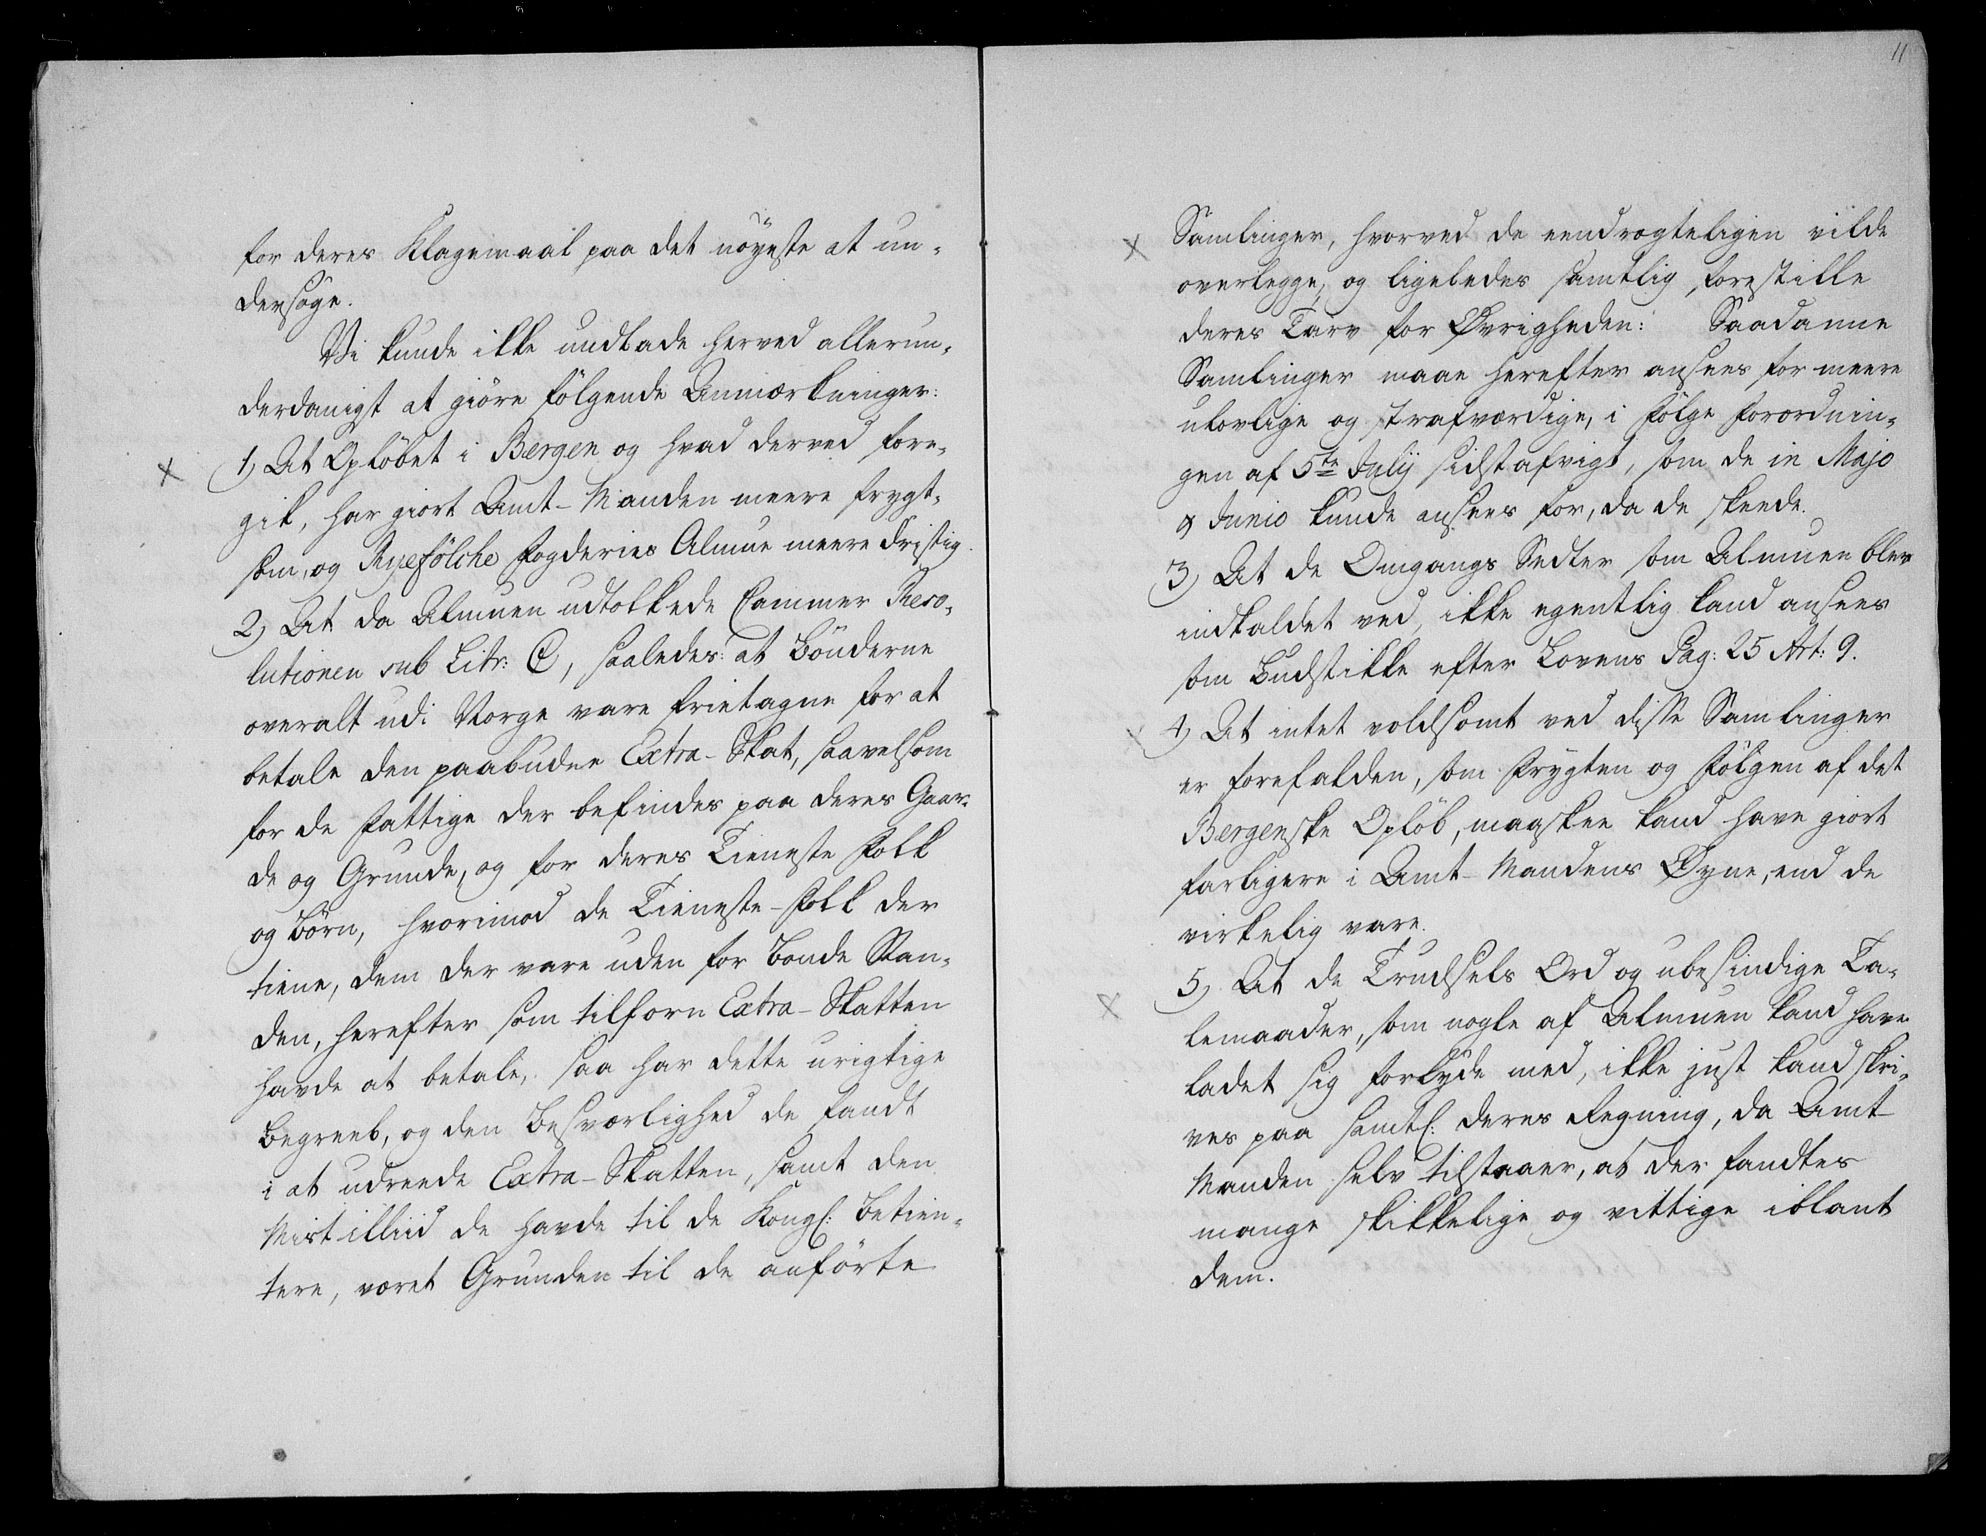 for deres Klagemaal paa det nöyeste at un-
dersöge.
Vi kunde ikke undlade herved allerun-
derdanigst at giöre fölgende Anmærkninger:
1) At Oplöbet i Bergen og hvad derved fore-
gik, har giort Amt-Manden meere frygt-
som, og Ryefölche Fogderies Almue meere dristig.
2) At da Almuen udtolkede Cammer Reso-
lutionen sub Litr: C, saaledes: at Bönderne
overalt udi Norge vare frietagne for at
betale den paabudne Extra-Skat, saavelsom
for de Fattige der befindes paa deres Gaar-
de og Grunde, og for deres Tieneste Folk
og Börn, hvorimod de Tieneste-Folk der
tiene, dem der vare uden for Bonde Stan-
den, herefter som tilforn Extra-Skatten
havde at betale, saa har dette urigtige
Begreeb, og den Besværlighed de fandt
i at udreede Extra-Skatten, samt den
Mistilliid de havde til de Kongl: Betien-
tere, været Grunden til de anförte
11
Samlinger, hvorved de eendrægteligen vilde
overlegge, og ligeledes samtlig forestille
deres Tarv for Øvrigheden: Saadanne
Samlinger maae herefter ansees for meere
ulovlige og strafværdige, i Fölge Forordnin-
gen af 5te Julij sidstafvigt, som de in Majo
& Junio kunde ansees for, da de skeede.
3) At de Omgangs Sedler som Almuen blev
indkaldet ved, ikke egentlig kand ansees
som Budstikke efter Lovens Pag: 25 Art: 9.
4) At intet voldsomt ved disse Samlinger
er forefalden, som Frygten og Fölgen af det
Bergenske Oplöb, maaskee kand have giort
farligere i Amt-Mandens Øyne, end de
virkelig vare.
5) At de Trudsels Ord og ubesindige Ta-
lemaader, som nogle af Almuen kand have
ladet sig forlyde med, ikke just kand skri-
ves paa samtl: deres Regning, da Amt-
Manden selv tilstaaer, at der fandtes
mange skikkelige og vittige iblant
dem.